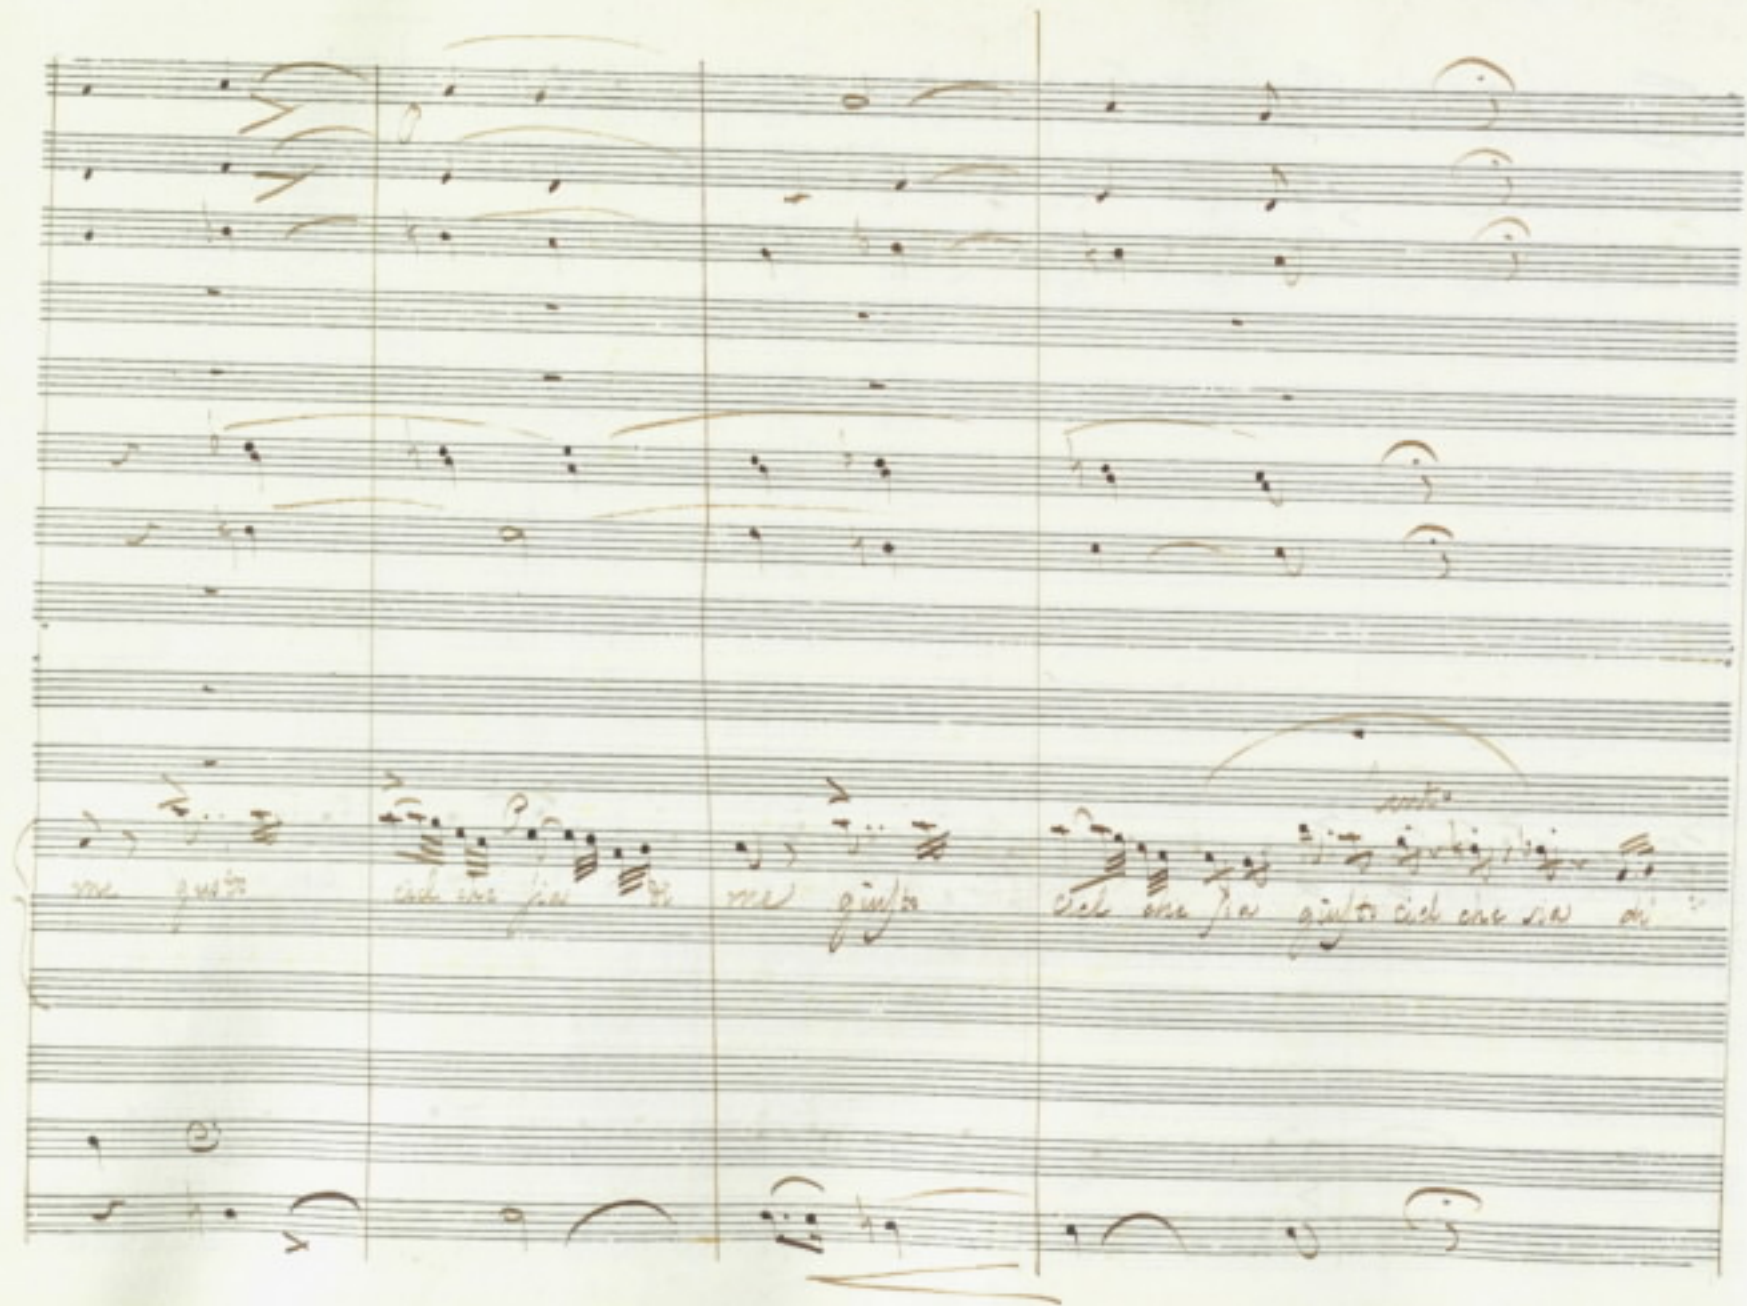 me giusto ciel che sia di me giusto ciel che sia giusto ciel che sia di